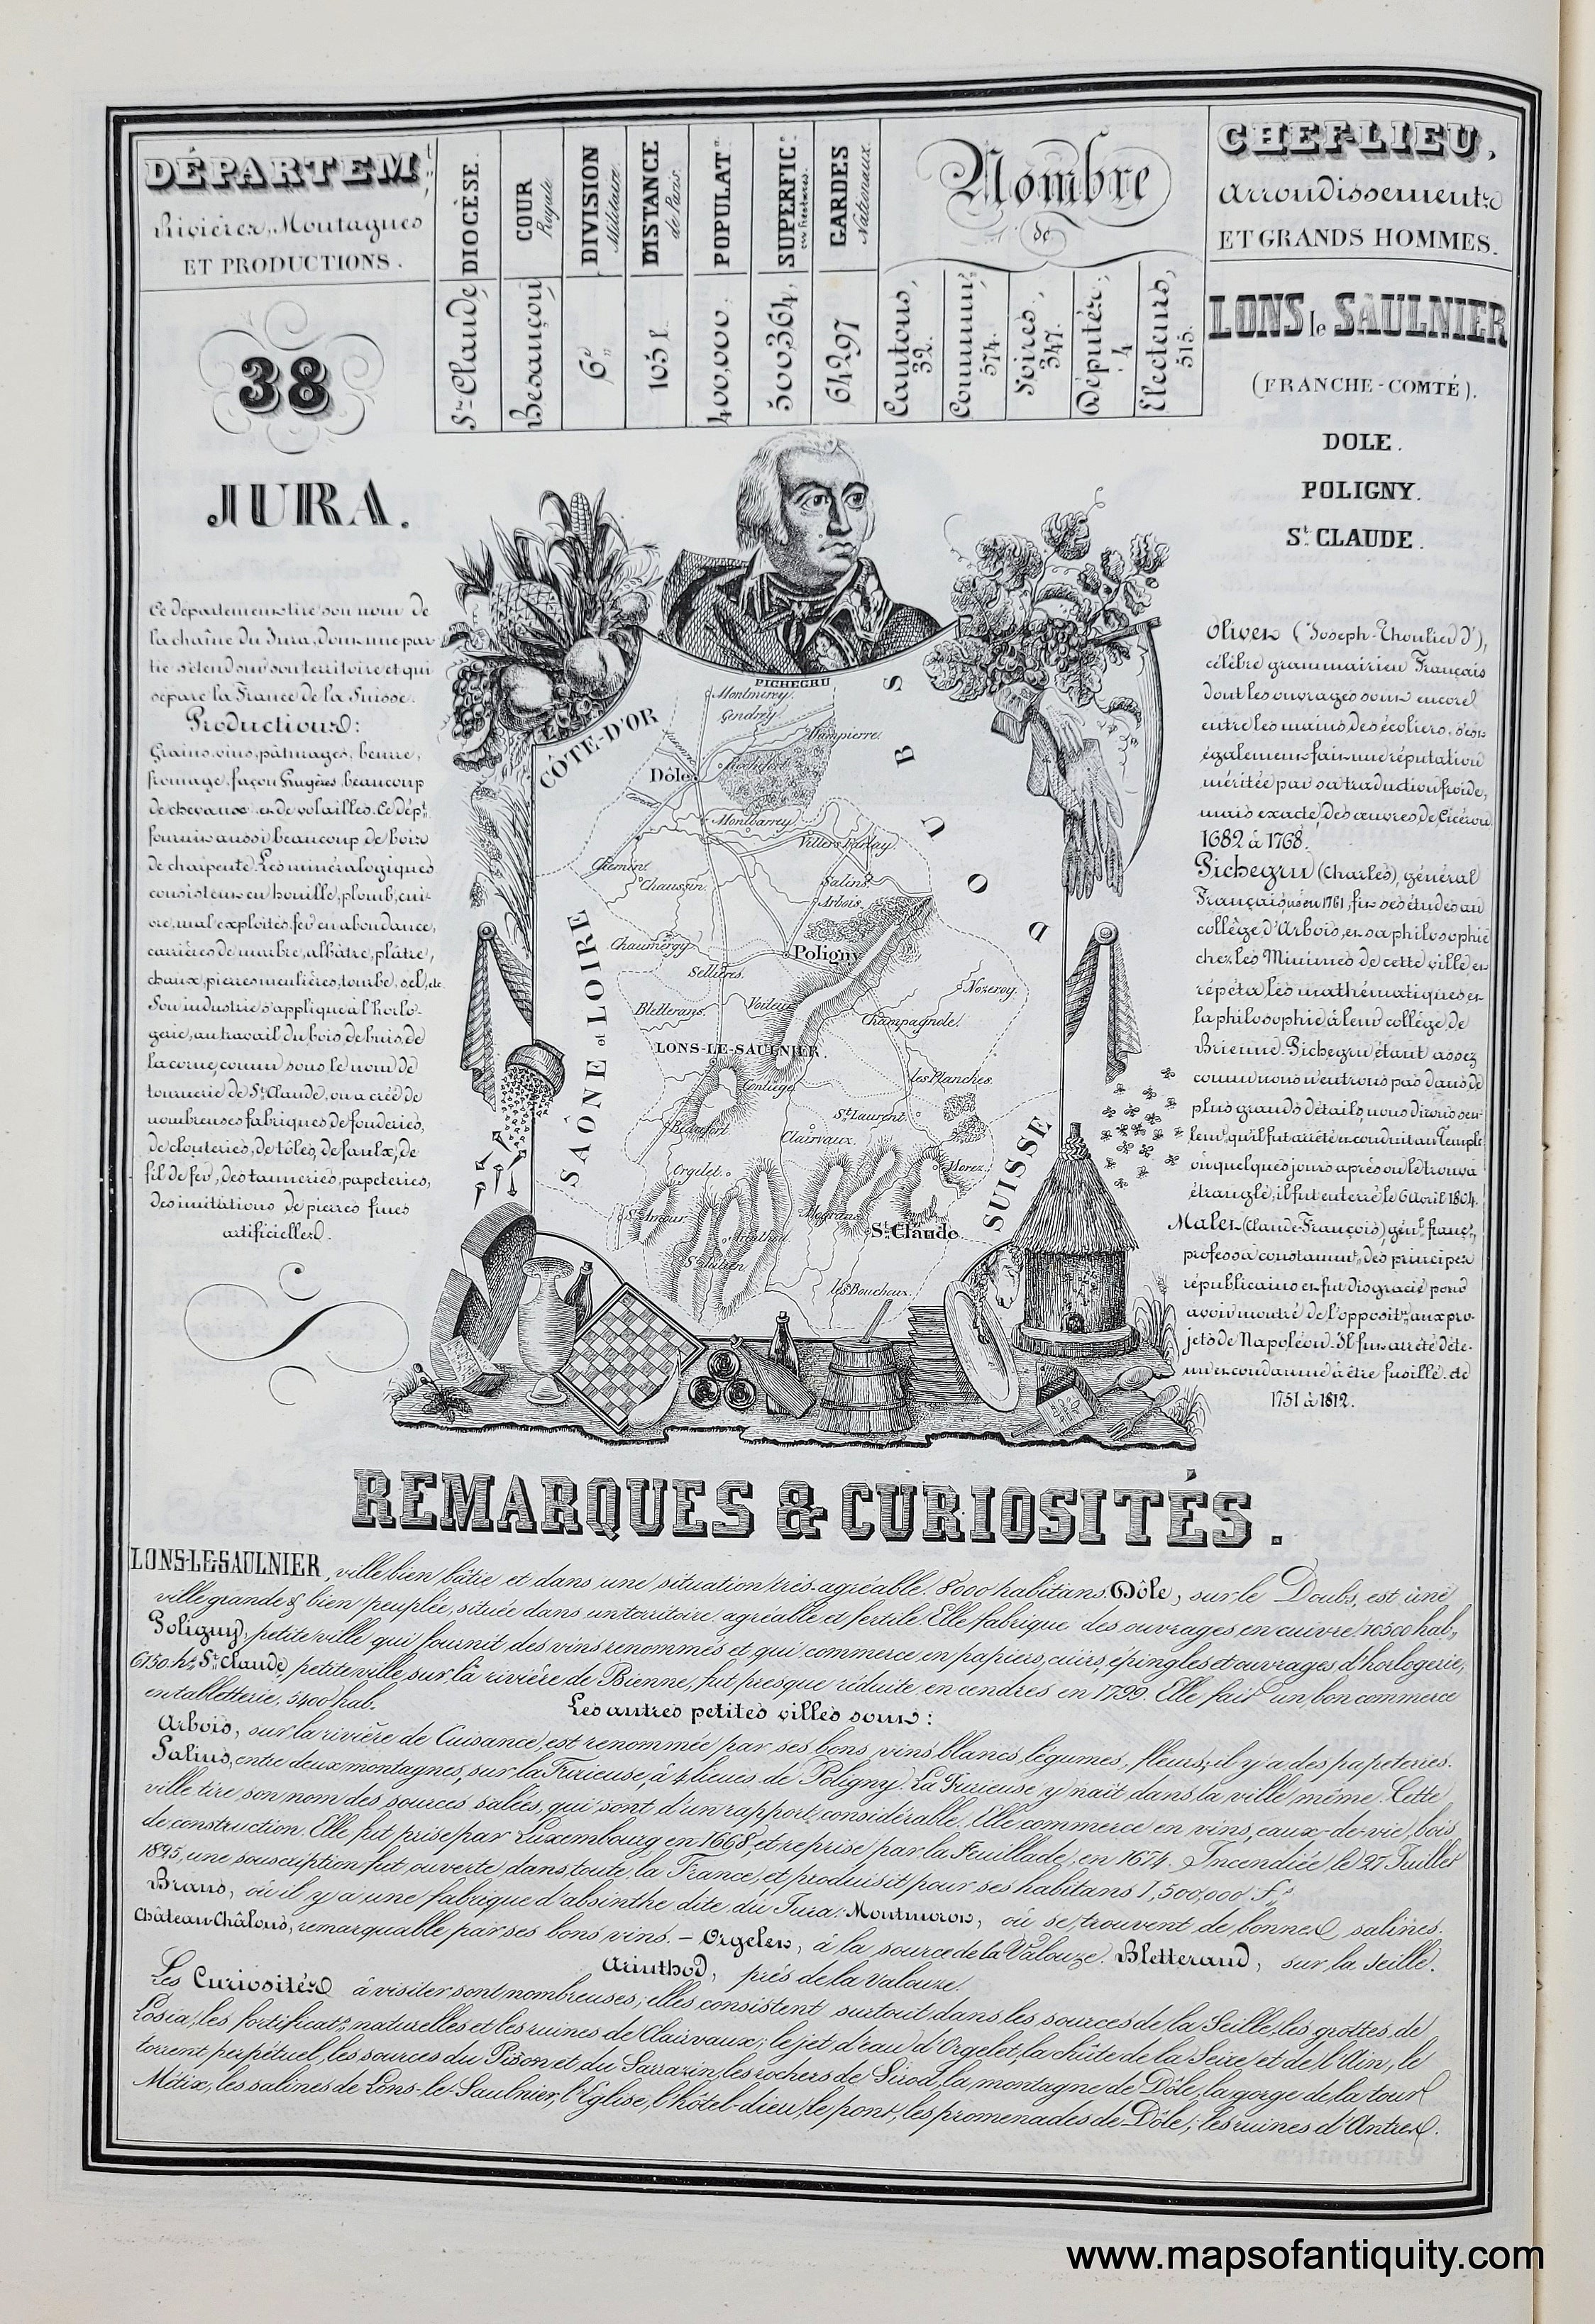 DÉPARTEM.
Rivières, Montagnes
ET PRODUCTIONS.
DIOCÈSE.
St. Claude
COUR
Royale
Besançon
DIVISION
Militaire.
6e
DISTANCE
de Paris.
105 l.
POPULATon
400,000.
SUPERFIC:
en hectares.
500,364.
GARDES
Nationaux.
64297
Nombre
de
Cantons,
32.
Commun:
574.
Foires,
347.
Députés,
4
Electeurs,
515.
CHEF-LIEU,
Arrondissements
ET GRANDS HOMMES.
38
JURA.
Ce département tire son nom de
la chaîne du Jura, dont une par
tie s'étend sur son territoire et qui
sépare la France de la Suisse.
Productions:
Grains, vins, pâturages, beurre,
fromage façon Gruyères, beaucoup
de chevaux et de volailles. Ce dépt.
fournit aussi beaucoup de bois
de charpente. Les minéralogiques
consistent en houille, plomb, cui-
vre, mal exploités, fer en abondance,
carrières de marbre, albâtre, plâtre,
chaux, pierres meulières, tourbe, sel, etc.
Son industrie s'applique à l'horlo-
gerie, au travail du bois, de buis, de
la corne, connu sous le nom de
tournerie de St. Claude, on a créé de
nombreuses fabriques de fonderies,
de clouteries, de tôles, de faulx, de
fil de fer, des tanneries, papeteries,
des imitations de pierres fines
artificielles.
LONS le SAULNIER
(FRANCHE-COMTÉ).
DOLE.
POLIGNY.
St. CLAUDE.
Olivet (Joseph-Thoulier D'),
célèbre grammairien Français
dont les ouvrages sont encore
entre les mains des écoliers, s'est
également fait une réputation
méritée par sa traduction froide,
mais exacte, des œuvres de Cicéron.
1682 à 1768.
Pichegru (Charles), général
Français, né en 1761, fit ses études au
collège d'Arbois, et sa philosophie
chez les Minimes de cette ville et
répéta les mathématiques et
la philosophie à leur collège de
Brienne. Pichegru étant assez
connu nous n'entrons pas dans de
plus grands détails, nous dirons seu-
lemt. qu'il fut arrêté et conduit au Temple
où quelques jours après on le trouva
étranglé, il fut enterré le 6 Avril 1804.
Malet (Claude-François) génl. franç.,
professa constamt. des principes
républicains et fut disgracié pour
avoir montré de l'opposit: aux pro-
jets de Napoléon. Il fut arrêté, déte-
nu et condamné à être fusillé. de
1751 à 1812.
PICHEGRU
CÔTE-D'OR
DOUBS
SAÔNE et LOIRE
SUISSE
Montmirey.
Gendrey.
Dampierre.
Rochefort.
Dôle
Canal
Montbarrey
Villers Farlay.
Chemin.
Chaussin.
Salins.
Arbois.
Chaumergy
Poligny
Sellières.
Nozeroy.
Bletterans.
Voiteur
Champagnole.
LONS-LE-SAULNIER.
les Planches.
Conliège.
St. Laurent.
Beaufort.
Clairvaux.
Orgelet.
Morez.
St. Amour.
Moirans.
St. Claude
Arinthod.
St. Julien
les Bouchoux.
REMARQUES & CURIOSITÉS.
LONS-LE-SAULNIER, ville bien bâtie et dans une situation très-agréable. 8000 habitans. Dôle, sur le Doubs, est une
ville grande & bien peuplée, située dans un territoire agréable et fertile. Elle fabrique des ouvrages en cuivre. 10500 hab.,
Poligny, petite ville qui fournit des vins renommés et qui commerce en papiers, cuirs, épingles et ouvrages d'horlogerie,
6150 ht. St. Claude, petite ville sur la rivière de Bienne, fut presque réduite en cendres en 1799. Elle fait un bon commerce
en tabletterie, 5400 hab.
Les autres petites villes sont:
Arbois, sur la rivière de Cuisance, est renommée par ses bons vins blancs, légumes, fleurs; il y a des papeteries.
Salins, entre deux montagnes, sur la Furieuse, à 4 lieues de Poligny. La Furieuse y naît dans la ville même. Cette
ville tire son nom des sources salées, qui sont d'un rapport considérable. Elle commerce en vins, eaux-de-vie, bois
de construction. Elle fut prise par Luxembourg en 1668, et reprise par la Feuillade, en 1674. Incendiée le 27 Juillet
1825, une souscription fut ouverte dans toute la France, et produisit pour ses habitans 1,500,000 f.
Brans, où il y a une fabrique d'absinthe dite du Jura. Montmorot, où se trouvent de bonnes salines.
Château-Châlons, remarquable par ses bons vins. – Orgelet, à la source de la Valouze. Bletterand, sur la Seille.
Arinthod, près de la Valouze.
Les Curiosités à visiter sont nombreuses; elles consistent surtout dans les sources de la Seille, les grottes de
Losia, les fortificats. naturelles et les ruines de Clairvaux; le jet d'eau d'Orgelet, la chûte de la Seire et de l'Ain, le
torrent perpétuel, les sources du Pison et du Sarrazin, les rochers de Sirod, la montagne de Dôle, la gorge de la tour
Métix, les salines de Lons-le-Saulnier, l'Eglise, l'hôtel-dieu, le pont, les promenades de Dôle; les ruines d'Antres.
www.mapsofantiquity.com